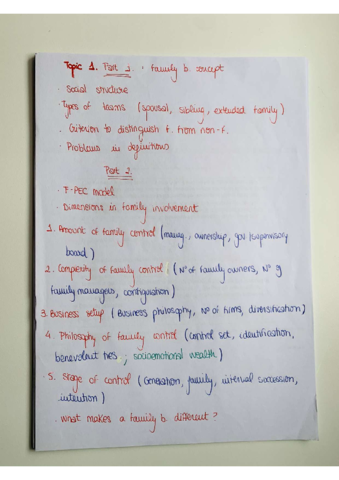 Topic 1. Part 1. · family b. concept
· Social structure
· Types of teams (spousal, sibling, extended family)
· Criterion to distinguish f. from non-f.
· Problems in definitions
Part 2.
· F-PEC model
· Dimensions in family involvement
1. Amount of family control (manag., ownership, gov./supervisory
board)
2. Complexity of family control: (Nº of family owners, Nº of
family managers, configuration)
3. Business setup (Business philosophy, Nº of firms, diversification)
4. Philosophy of family control (control set, identification,
benevolent ties, socioemotional wealth)
5. Stage of control (Generation, family, internal succession,
intention)
· What makes a family b. different?